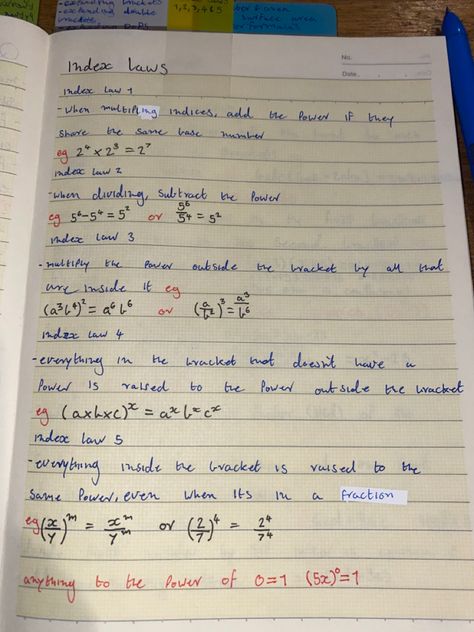 - expanding brackets
- expanding double
brackets
1, 2, 3, 4 & 5
surface area
No.
Date.
Index Laws
Index Law 1
- When multipling indices, add the Power if they
share the same base number
eg 2⁴ × 2³ = 2⁷
Index Law 2
- when dividing, subtract the Power
eg 5⁶ - 5⁴ = 5² or 5⁶/5⁴ = 5²
Index Law 3
- multiply the Power outside the bracket by all that
are inside it eg
(a³b⁴)² = a⁶b⁶ or (a/b²)³ = a³/b⁶
Index Law 4
- everything in the bracket that doesn't have a
Power is raised to the Power outside the bracket
eg (a×b×c)ˣ = aˣbˣcˣ
Index Law 5
- everything inside the bracket is raised to the
same Power, even when its in a fraction
eg (x/y)ᵐ = xᵐ/yᵐ or (2/7)⁴ = 2⁴/7⁴
anything to the Power of 0 = 1 (5x)⁰ = 1